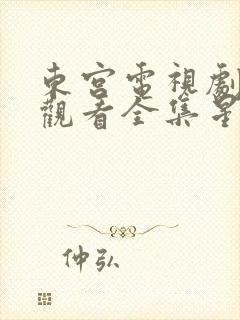 東宮電視劇
觀看全集星
仲弘